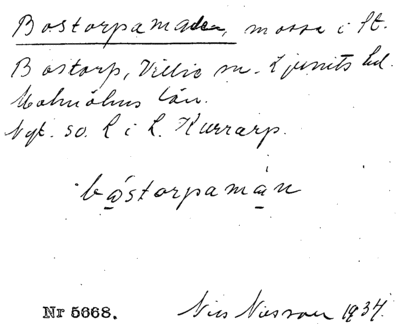 Bostorpamaden, mosse i St.
Bostorp, Villie sn. Ljunits hd.
Malmöhus län.
Ngt. so. l i L. Kurrarp.
båstorpamán
Nr 5668.
Nils Nilsson 1934.